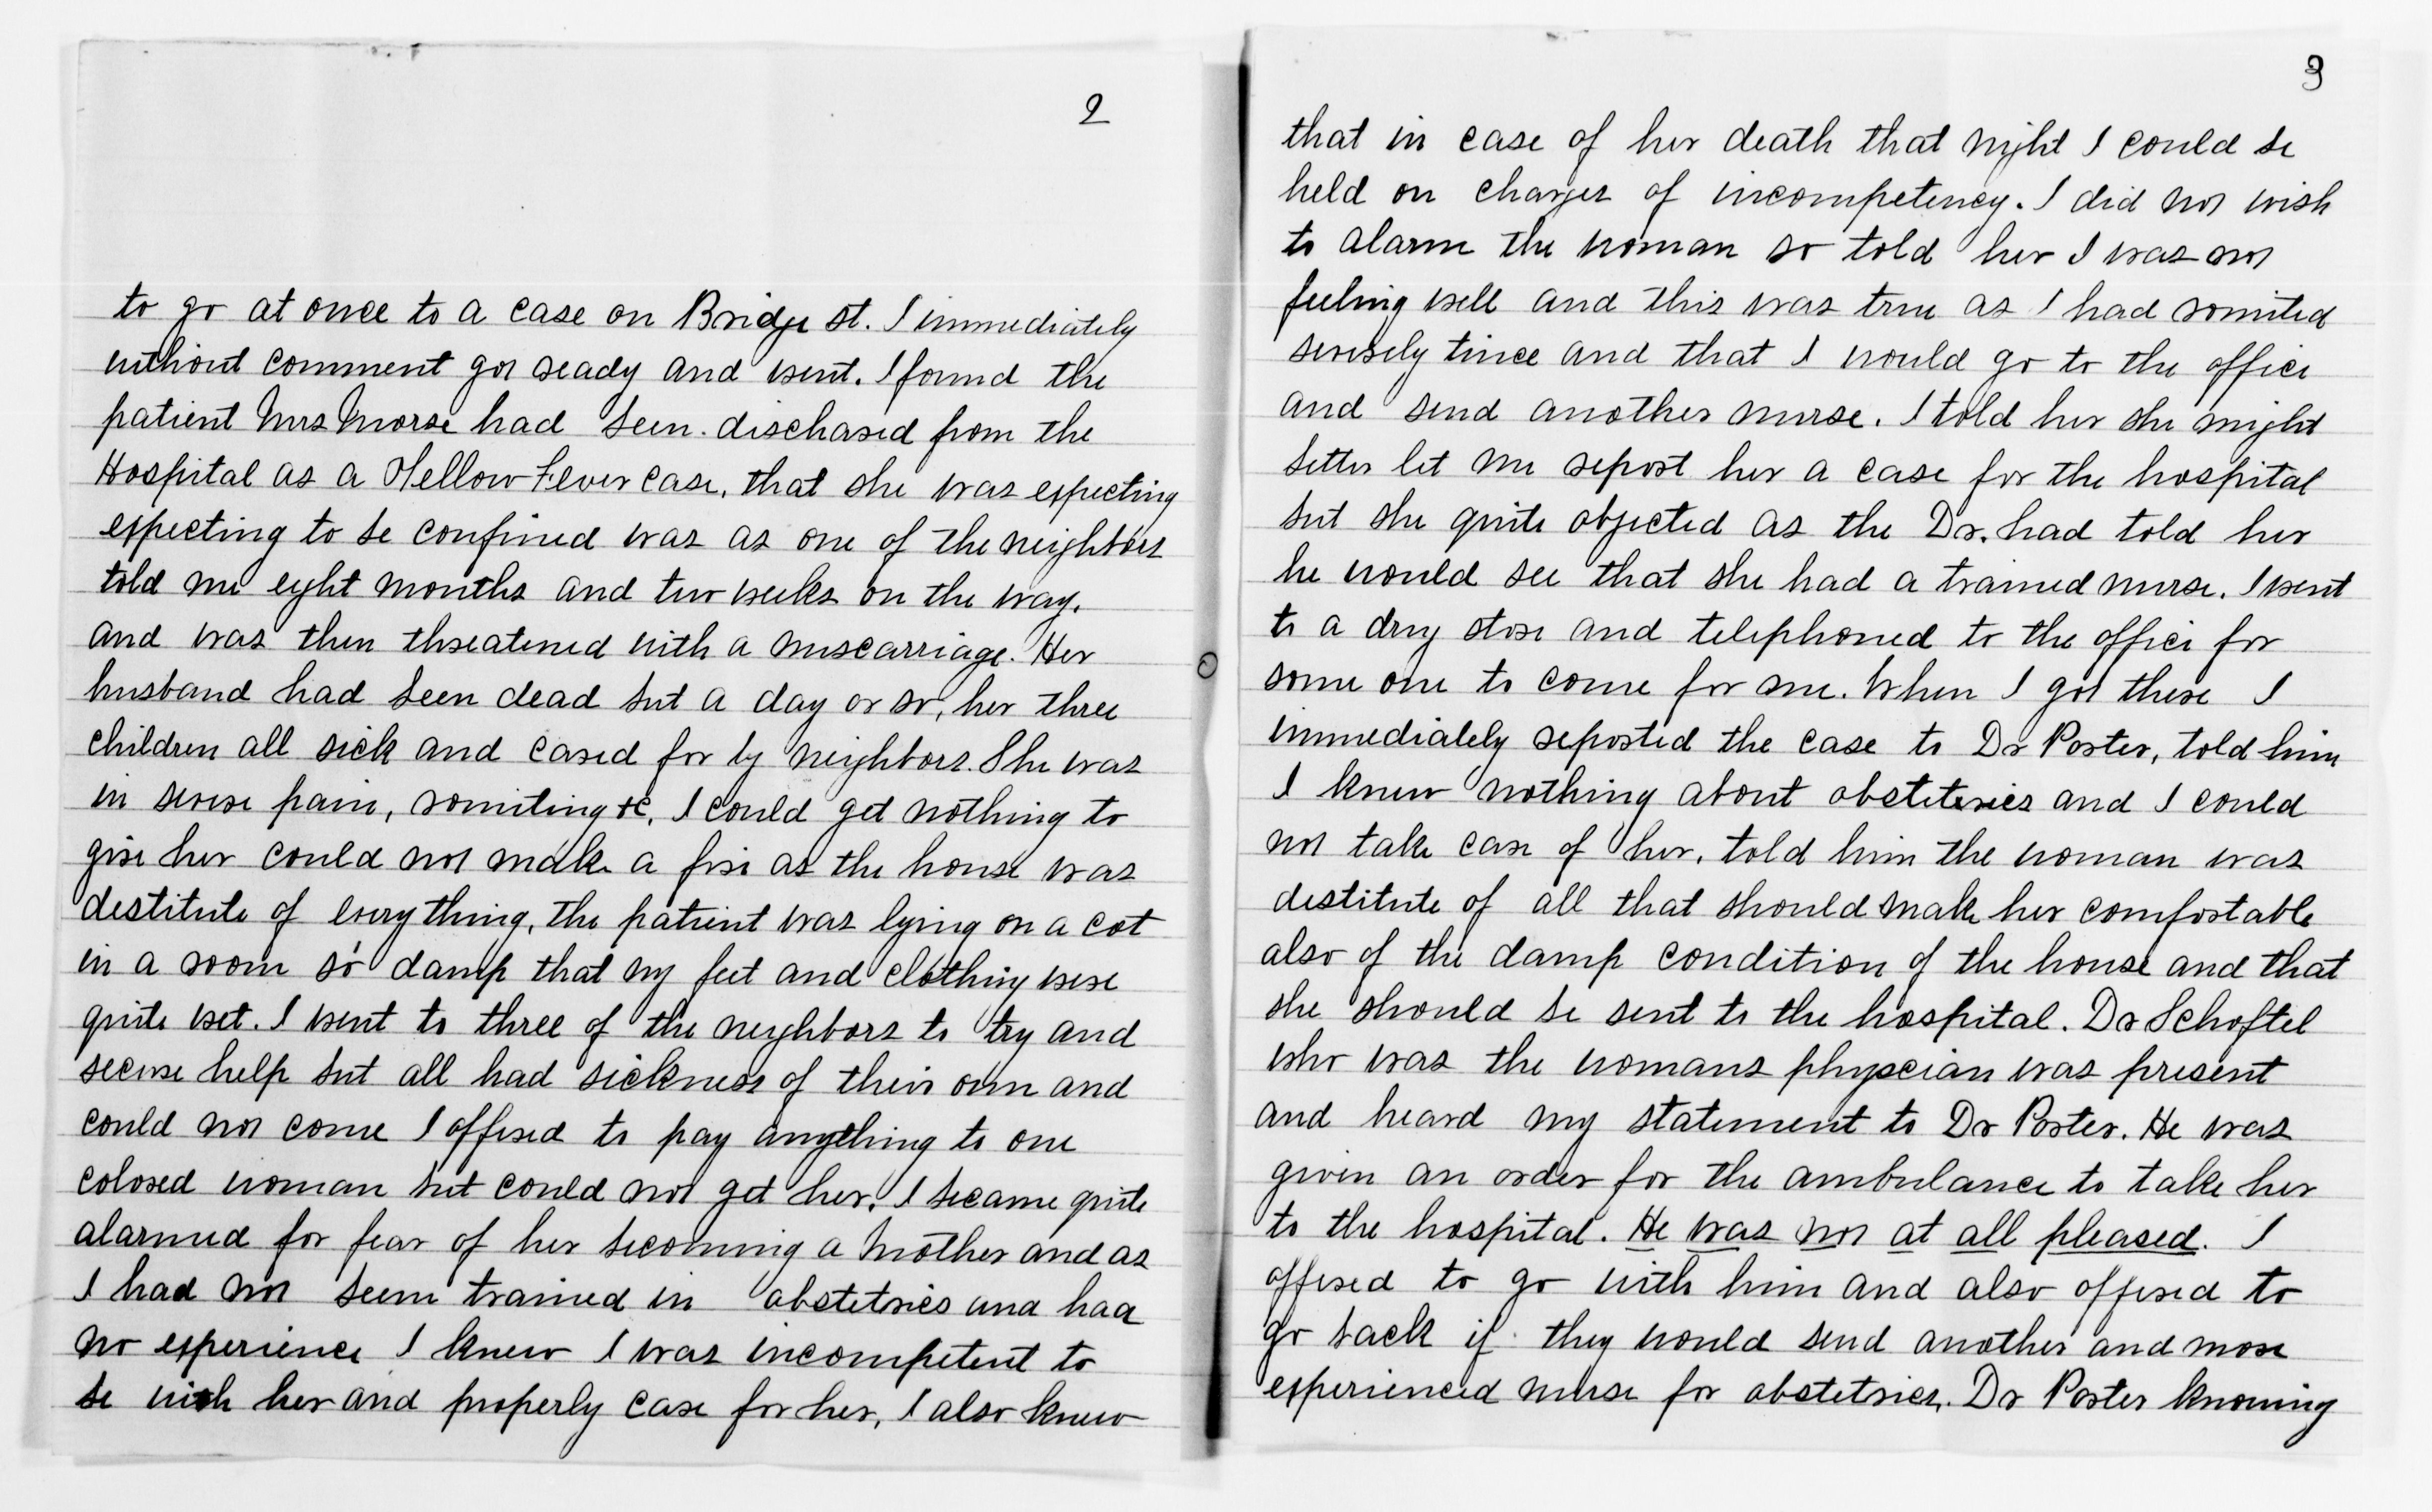 2
to go at once to a case on Bridge st. I immediately
without comment got ready and went. I found the
patient Mrs Morse had been. dischared from the
Hospital as a Yellow Fever case, that she was expecting
expecting to be confined was as one of the neighbors
told me eight months and two weeks on the way.
and was then threatened with a miscarriage. Her
husband had been dead but a day or so, her three
children all sick and cared for by neighbors. She was
in severe pain, vomiting &c, I could get nothing to
give her could not make a fire as the house was
destitute of everything, the patient was lying on a cot
in a room so damp that my feet and clothing were
quite wet. I went to three of the neighbors to try and
secure help but all had sickness of their own and
could not come I offered to pay anything to one
colored woman but could not get her. I became quite
alarmed for fear of her becoming a mother and as
I had not been trained in obstetrics and had
no experience I knew I was incompetent to
be with her and properly care for her, I also knew
3
that in case of her death that night I could be
held on charges of incompetency. I did not wish
to alarm the woman so told her I was not
feeling well and this was true as I had vomited
severely twice and that I would go to the office
and send another nurse. I told her she might
better let me report her a case for the hospital
but she quite objected as the Dr. had told her
he would see that she had a trained nurse. I went
to a drug store and telephoned to the office for
some one to come for me. When I got there I
immediately reported the case to Dr Porter, told him
I knew nothing about obstetrics and I could
not take care of her, told him the woman was
destitute of all that should make her comfortable
also of the damp condition of the house and that
she should be sent to the hospital. Dr Schoftel
who was the womans physcian was present
and heard my statement to Dr Porter. He was
given an order for the ambulance to take her
to the hospital. He was not at all pleased. I
offered to go with him and also offered to
go back if they would send another and more
experienced nurse for obstetrics. Dr Porter knowing